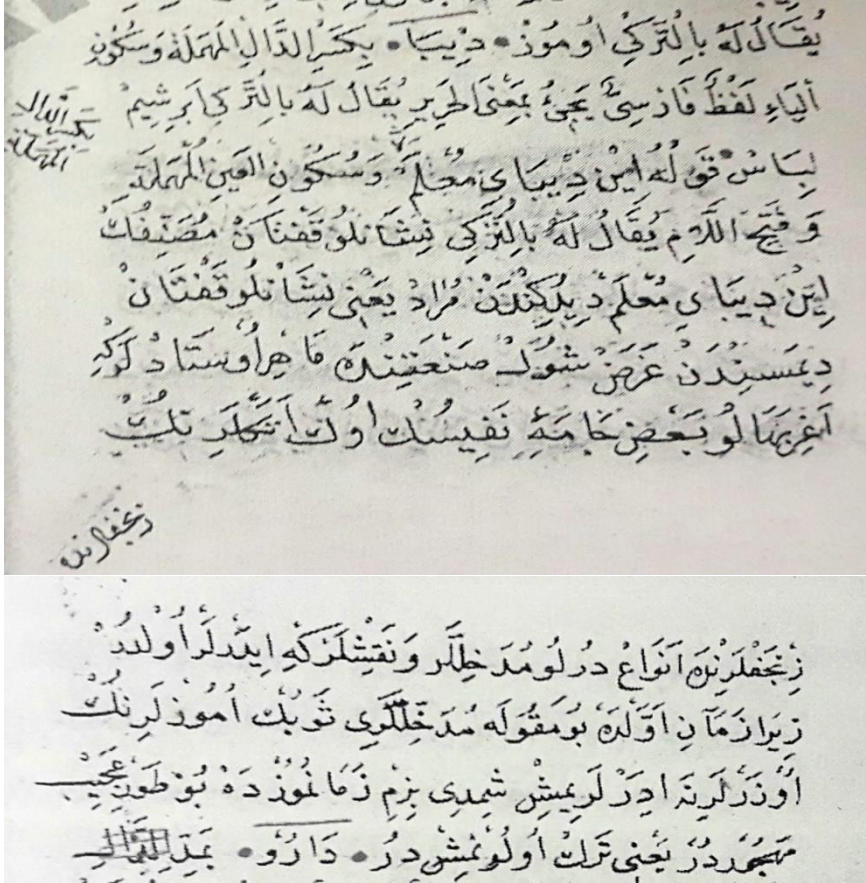 يُقَالُ لَهُ بِالتُّرْكِي اُومُوزْ • دِيبَا • بِكَسْرِ الدَّالِ الْمُهْمَلَةِ وَسُكُونِ
اَلْيَاءِ لَفْظٌ فَارْسِىٌّ يَجِئُ بِمَعْنَى الْحَرِيرِ يُقَالُ لَهُ بِالتُّرْكِى اَبْرِشِيمْ
بكسر الدال
المهملة
لِبَاسْ قَوْلُهُ اِينْ دِيبَاىِ مُعْلَمْ وَسُكُونِ الْعَيْنِ الْمُهْمَلَةِ
وَفَتْحِ اللَّامِ يُقَالُ لَهُ بِالتُّرْكِى نِشَانْلُو قَفْتَانْ مُصَنِّفُكْ
اِينْ دِيبَاىِ مُعْلَمْ دِيدُكِنْدَنْ مُرَادْ يَعْنِى نِشَانْلُو قَفْتَانْ
دِيمَسِنْدَنْ غَرَضْ شُولْ صَنْعَتِنْدَه مَاهِرْ اُوسْتَادْلَرْكِه
اَغِرْ بَهَالُو بَعْضِ جَامَهِٔ نَفِيسْنُكْ اُوكْ اَتَكْلَرِينُكْ
زنجفلرنده
زِنْجَفْلَرِنْدَه اَنْوَاعْ دُرْلُو مُدَخِلَّلَرْ وَنَقْشْلَرْكِه اِيدَرْلَرْ اُولْدُرْ
زِيرَا زَمَانِ اَوَّلْدَه بُومَقُولَه مُدَخِلَّلَرِى ثَوْبُكْ اُمُوزْلَرِنُكْ
اُوزَرْلَرِنَه اِدَرْلَرِيمِشْ شِمْدِى بِزِمْ زَمَانُمُوزْدَه بُو طَوْنِ عَجِيبْ
مَهْجُورْدُرْ يَعْنِى تَرْكْ اُولُونْمِشْ دُرْ • دَارُو •